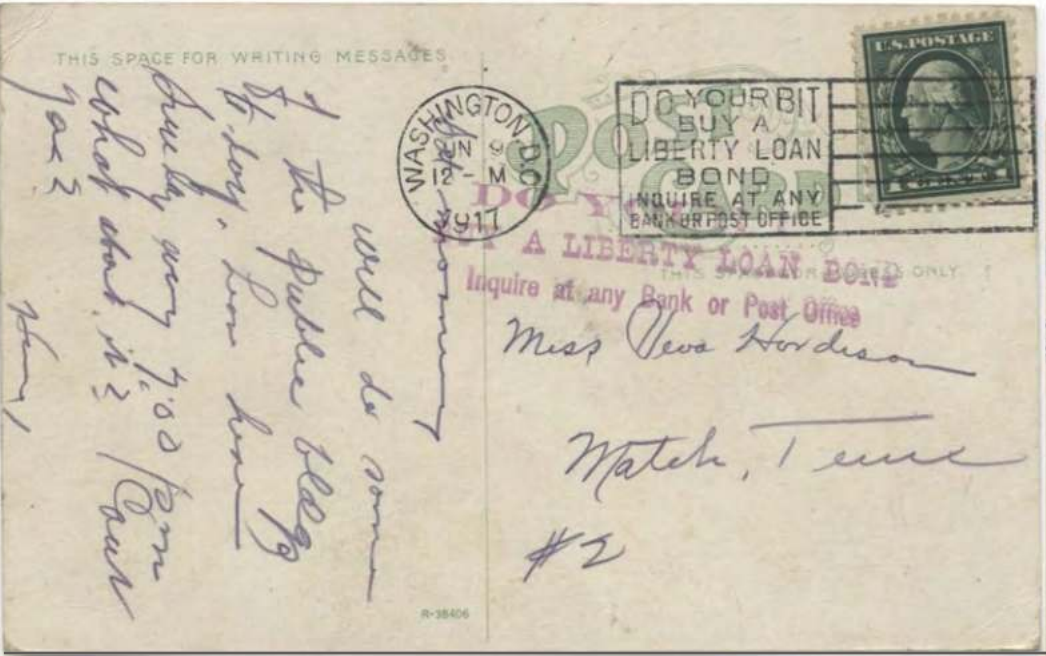 THIS SPACE FOR WRITING MESSAGES
Sat. morning
Will do some
of the public bldg
to-day. Leave here
Sunday
what
Henry,
R-38406
POST CARD
WASHINGTON, D.C.
JUN 9
12-M
1917
DO YOUR BIT
BUY A
LIBERTY LOAN
BOND
INQUIRE AT ANY
BANK OR POST OFFICE
U.S. POSTAGE
DO YOUR BIT
BUY A LIBERTY LOAN BOND
Inquire at any Bank or Post Office
THIS SPACE FOR ADDRESS ONLY.
Miss Veva Hardison
Match, Tenn
#2